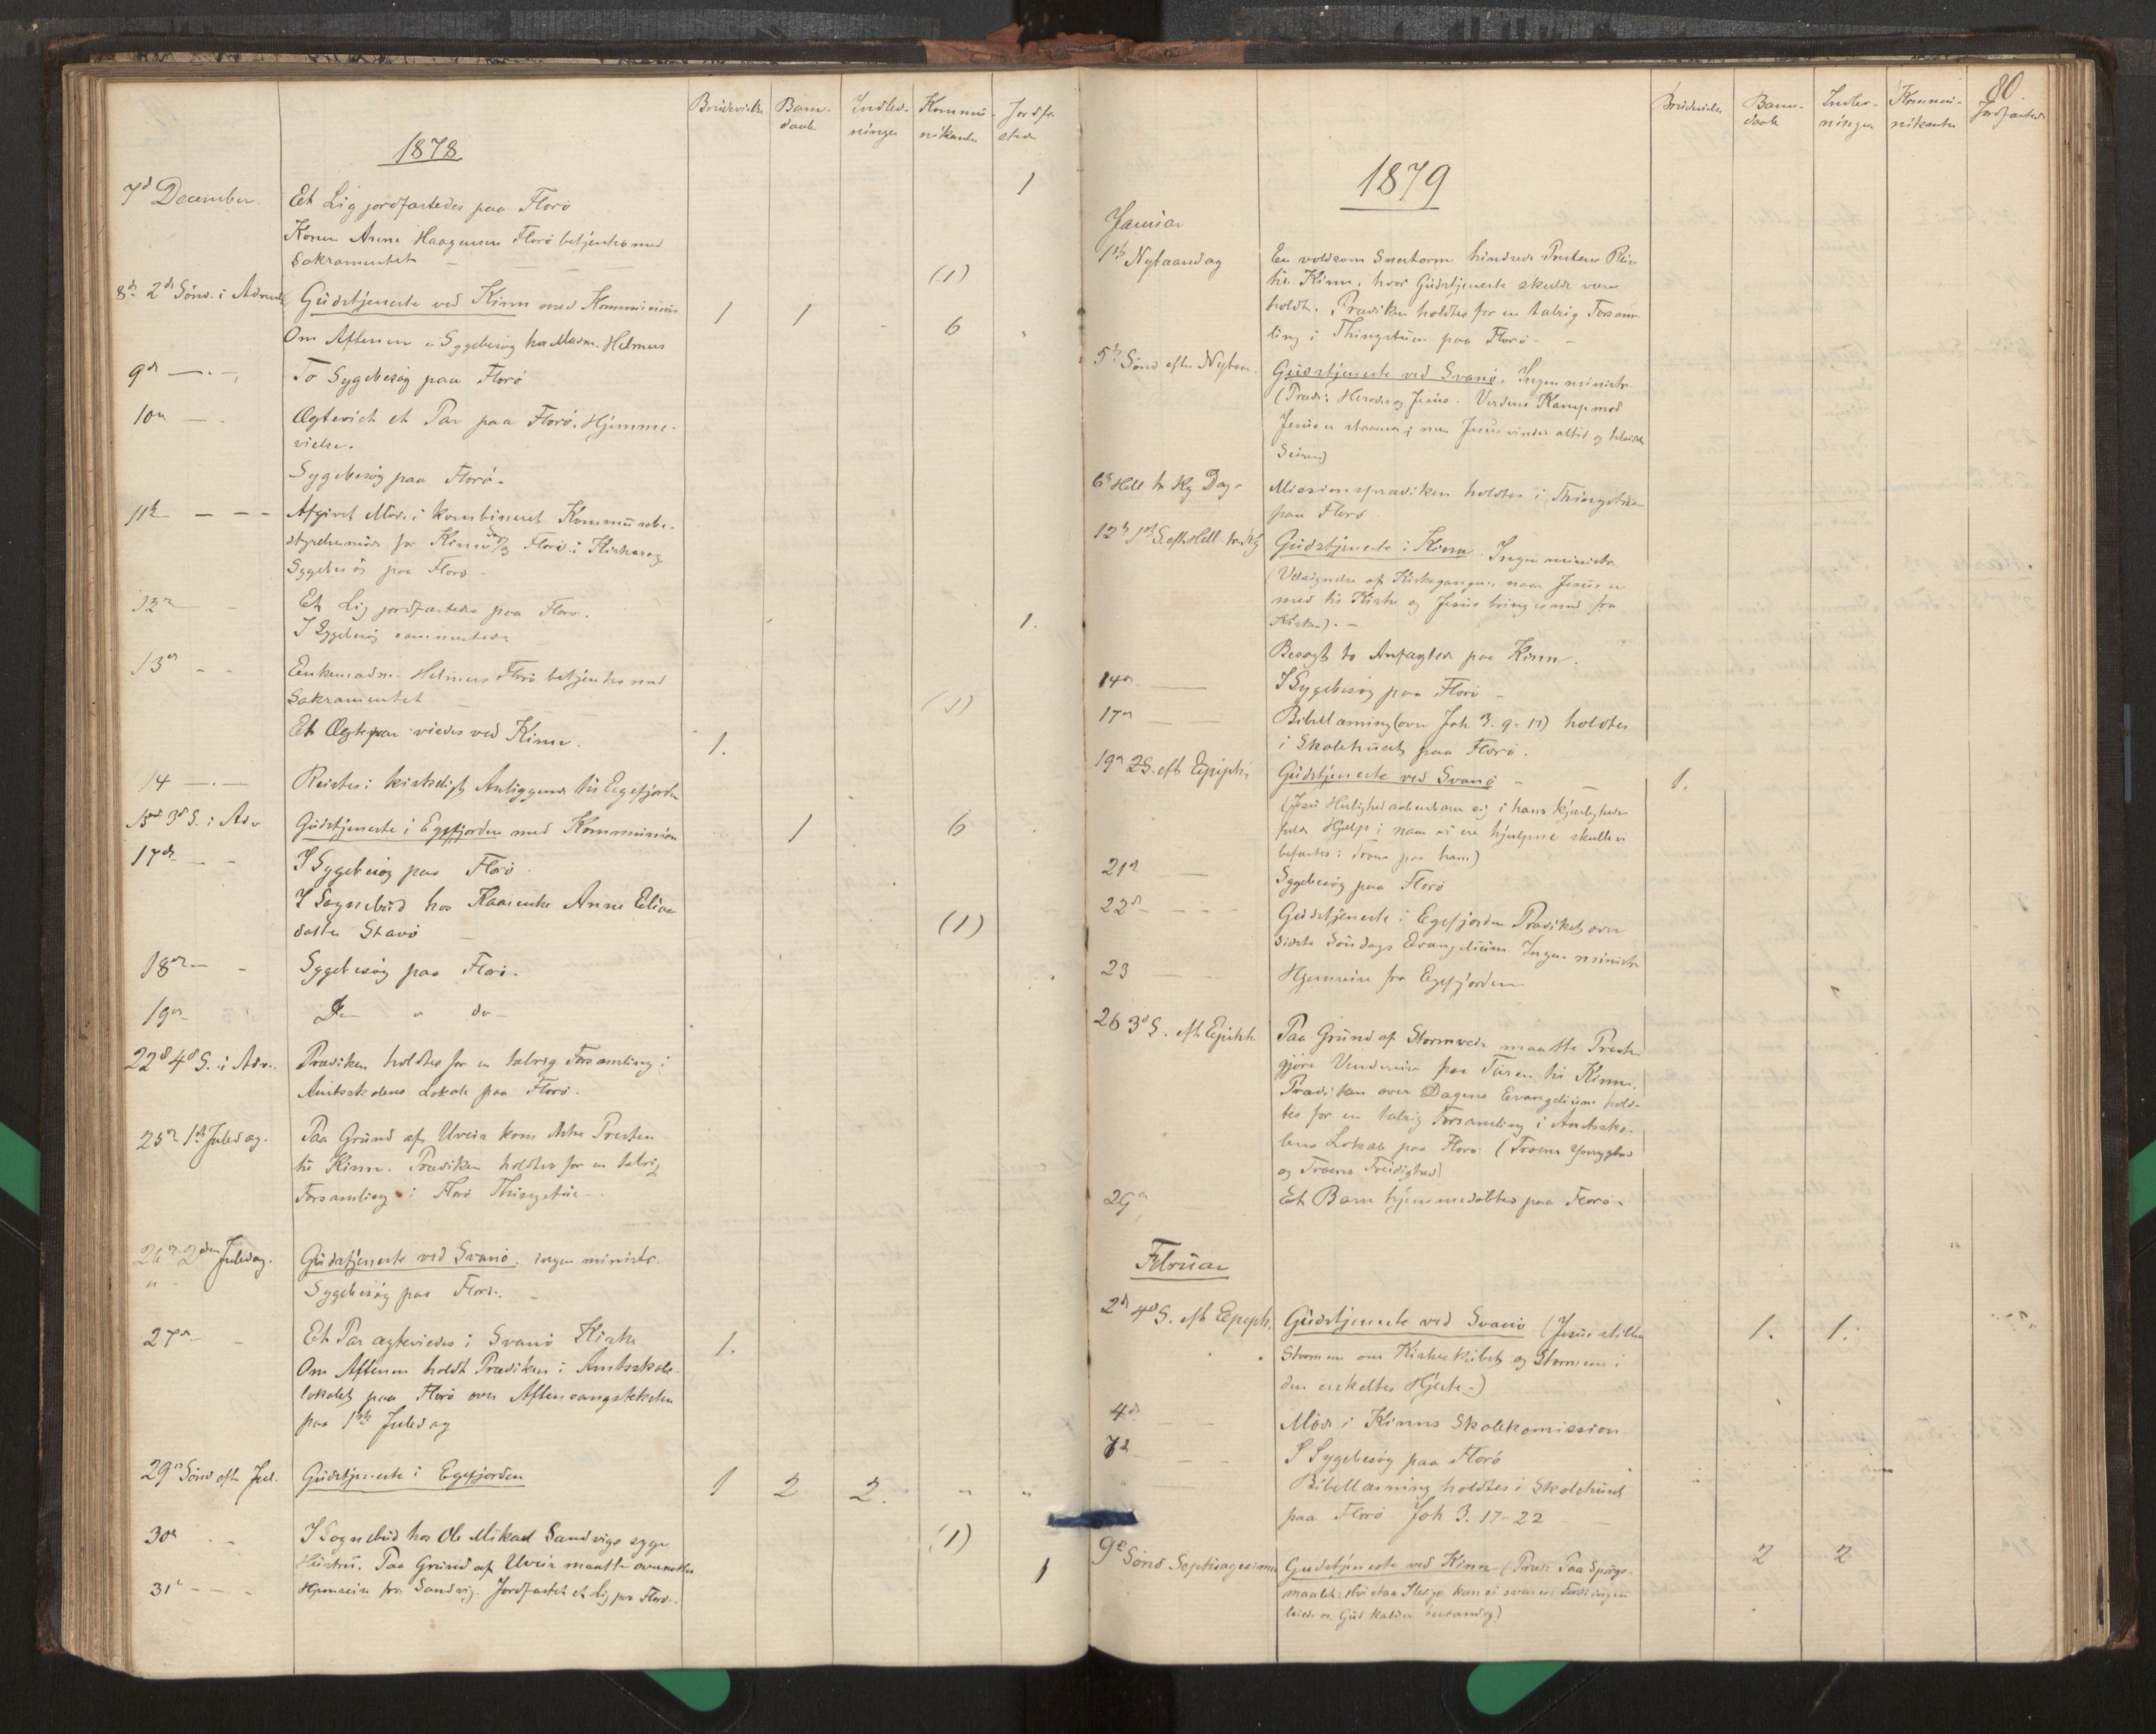 Brudevielse
Barne-
daab
Indled-
ninger
Kommu-
nikanter
Jordfæ-
stede
1878
7d December. Et Lig jordfæstedes paa Florø 1
Konen Anne Haagensen Florø betjentes med
Sakramentet — (1)
8de 2d Sønd. i Advent Gudstjeneste ved Kinn med Kommunion 1 1 - 6 "
Om Aftenen i Sygebesøg hos Madm. Helmers
9de — . — To Sygebesøg paa Florø
10de — . Ægteviet et Par paa Florø. Hjemme-
vielse.
Sygebesøg paa Florø -
11te — — — Afgivet Møde i kombineret Kommunebe-
styrelsesmøde for Kinn og Florø i Kirkesag
Sygebesøg paa Florø -
12te — - Et Lig jordfæstedes paa Florø. 1.
I Sygebesøg sammesteds
13de — — Enkemadm. Helmers Florø betjentes med
Sakramentet — (1)
Et Ægtepar viedes ved Kinn. 1.
14 — . — Reiste i kirkeligt Anliggende til Egefjorden
15de 3d S. i Adv Gudstjeneste i Egefjorden med Kommunion 1 6
17de — — I Sygebesøg paa Florø.
I Sognebud hos Kaarenke Anne Elias
datter Stavø — (1)
18de — - Sygebesøg paa Florø.
19de Do " do —
22d 4d S. i Adv. Prædiken holdtes for en talrig Forsamling i
Amtsskolens Lokale paa Florø.
25de 1ste Juledag. Paa Grund af Uveir kom ikke Presten
til Kinn. Prædiken holdtes for en talrig
Forsamling i Florø Thingstue —.
26de 2den Juledag. Gudstjeneste ved Svanø. ingen ministr.
" - Sygebesøg paa Florø. —
27de - Et Par ægteviedes i Svanø Kirke 1.
Om Aftenen holdt Prædiken i Amtsskole-
lokalet paa Florø over Aftensangsteksten
paa 1ste Juledag
29de Sønd eft Jul. Gudstjeneste i Egefjorden 1 2 2. " "
30de - - I Sognebud hos Ole Mikael Sandvigs syge (1)
Hustru. Paa Grund af Uveir maatte overnattes
31te — — - Hjemreise fra Sandvig. Jordfæstet et Lig paa Florø. 1
80.
Brudevielse
Barne-
daab
Indled-
ninger
Kommu-
nikanter
Jordfæstede
1879
Januar
1ste Nytaarsdag En voldsom Snestorm hindrede Prestens Reise
til Kinn, hvor Gudstjeneste skulde være
holdt. Prædiken holdtes for en talrig Forsam-
ling i Thingstuen paa Florø - —
5te Sønd efter Nytaar. Gudstjeneste ved Svanø. Ingen ministr.
(Præd: Herodes og Jesus. Verdens Kamp mod
Jesus er stammer; men Jesus vinder altid og tilsidst
Seiren)
6te Hell tr Kg Dag - Missionsprædiken holdtes i Thingstuen
paa Florø
12te 1ste S. eft Hell. tr. Kg Gudstjeneste i Kinn. Ingen ministr.
(Velsignelse af Kirkegangen, naar Jesus er
med til Kirke og Jesus bringes med fra
Kirken). —
Besøgt to Anfægtede paa Kinn.
14de — I Sygebesøg paa Florø —
17de — Bibellæsning (over Joh 3. 9-17) holdtes
i Skolehuset paa Florø.
19de 2 S. eft Epiph. Gudstjeneste ved Svanø — 1.
(Jesu Herlighed aabenbarer sig i hans kjærligheds
fulde Hjælp; naar vi ere hjulpne skulle vi
befæstes i Troen paa ham)
21de — Sygebesøg paa Florø
22de — - - Gudstjeneste i Egefjorden Prædiket over
sidste Søndags Evangelium. Ingen ministr
23 — Hjemreise fra Egefjorden
26 3d S. eft Epiph Paa Grund af Stormveir maatte Presten
gjøre Vendereise paa Turen til Kinn.
Prædiken over Dagens Evangelium hold-
tes for en talrig Forsamling i Amtssko-
lens Lokale paa Florø (Troens Ydmyghed
og Troens Freidighed)
29de — Et Barn hjemmedøbtes paa Florø -
Februar
2de 4d S. eft Epiph. Gudstjeneste ved Svanø (Jesus stiller 1. 1.
Stormen om Kirkeskibet og Stormene i
den enkeltes Hjerte -)
4de — — Møde i Kinns Skolekomission
7de — — I Sygebesøg paa Florø
" — Bibellæsning holdtes i Skolehuset
paa Florø Joh 3. 17-22 —
9de Sønd Septuagesima Gudstjeneste ved Kinn (Præd: Paa Spørgs- 2 2
maalet: Hvi staa I ledige kan ei svares: Fordi ingen
leiede os. Gud kalder bestandig)